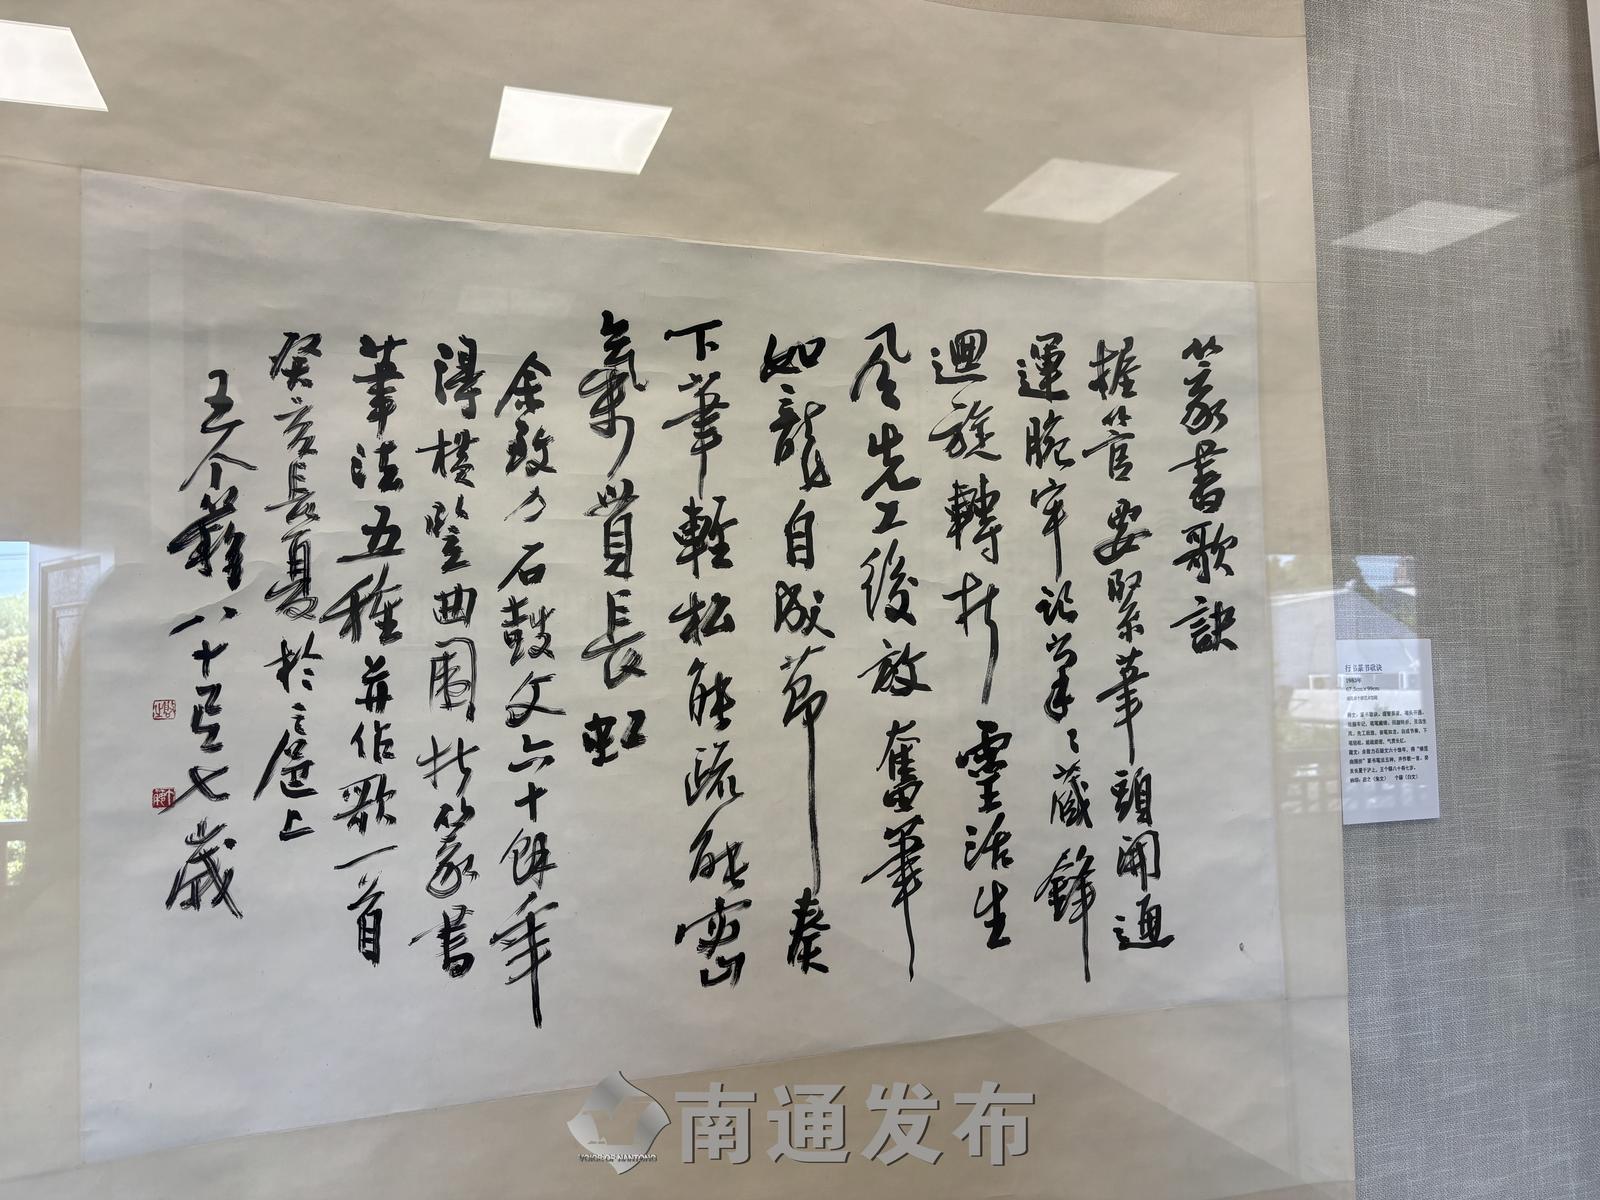 篆書歌訣
握管要緊筆頭開通
運腕牢記筆筆藏鋒
迴旋轉折靈活生
風先工後放奮筆
如龍自成節奏
下筆輕松能疏能密
氣貫長虹
余致力石鼓文六十餘年
得橫豎曲圍折篆書
筆法五種并作歌一首
癸亥長夏於滬上
王个簃八十又七歲
行书篆书歌诀
1983年
南通发布
VOICE OF NANTONG